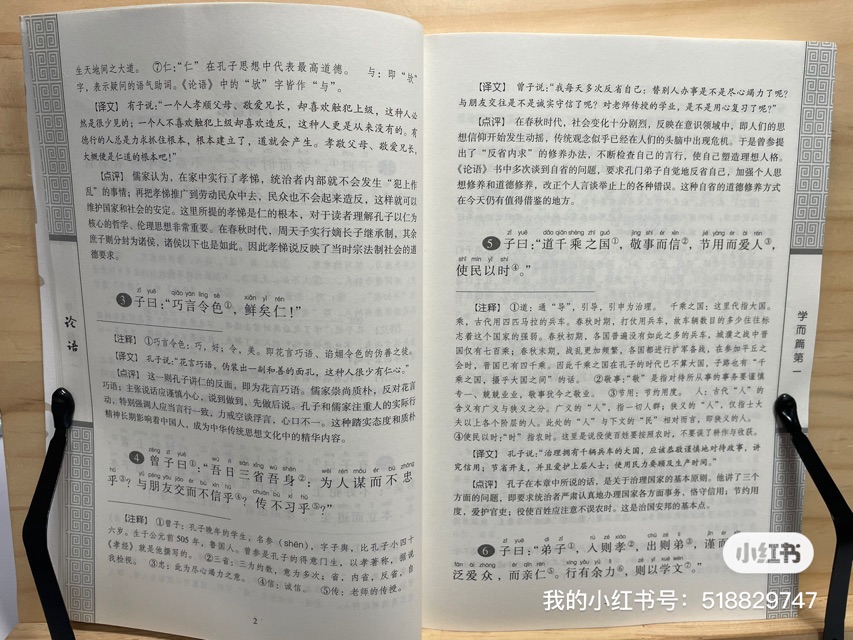 生天地间之大道。 ⑦仁:“仁”在孔子思想中代表最高道德。 与:即“欤”
字,表示疑问的语气助词。《论语》中的“欤”字皆作“与”。
【译文】 有子说:“一个人孝顺父母、敬爱兄长,却喜欢触犯上级,这种人必
然是很少见的;一个人不喜欢触犯上级却喜欢造反,这种人更是从来没有的。有
德行的人总是力求抓住根本,根本建立了,道就会产生。孝敬父母、敬爱兄长,
大概便是仁道的根本吧!”
【点评】 儒家认为,在家中实行了孝悌,统治者内部就不会发生“犯上作
乱”的事情;再把孝悌推广到劳动民众中去,民众也不会起来造反,这样就可以
维护国家和社会的安定。这里所提的孝悌是仁的根本,对于读者理解孔子以仁为
核心的哲学、伦理思想非常重要。在春秋时代,周天子实行嫡长子继承制,其余
庶子则分封为诸侯,诸侯以下也是如此。因此孝悌说反映了当时宗法制社会的道
德要求。
zǐ yuē qiǎo yán lìng sè xiǎn yǐ rén
3 子曰:“巧言令色①,鲜矣仁!”
【注释】 ①巧言令色:巧,好;令,美。即花言巧语、谄媚令色的伪善之徒。
【译文】 孔子说:“花言巧语,伪装出一副和善的面孔,这种人很少有仁心。”
【点评】 这一则孔子讲仁的反面,即为花言巧语。儒家崇尚质朴,反对花言
巧语;主张说话应谨慎小心,说到做到,先做后说。孔子和儒家注重人的实际行
动,特别强调人应当言行一致,力戒空谈浮言,心口不一。这种踏实态度和质朴
精神长期影响着中国人,成为中华传统思想文化中的精华内容。
zēng zǐ yuē wú rì sān xǐng wú shēn wèi rén móu ér bù zhōng
4 曾子曰①:“吾日三省吾身②:为人谋而不忠
hū yǔ péng yǒu jiāo ér bú xìn hū chuán bù xí hū
乎③?与朋友交而不信乎④?传不习乎⑤?”
【注释】 ①曾子:孔子晚年的学生,名参(shēn),字子舆,比孔子小四十
六岁。生于公元前505年,鲁国人。曾参是孔子的得意门生,以孝著称,据说
《孝经》就是他撰写的。 ②三省:三为约数,意为多次;省,内省,反省,自
我检视。 ③忠:此为尽心竭力之意。 ④信:诚信。 ⑤传:老师的传授。
2
论语
【译文】 曾子说:“我每天多次反省自己:替别人办事是不是尽心竭力了呢?
与朋友交往是不是诚实守信了呢?对老师传授的学业,是不是用心复习了呢?”
【点评】 在春秋时代,社会变化十分剧烈,反映在意识领域中,即人们的思
想信仰开始发生动摇,传统观念似乎已经在人们的头脑中出现危机。于是曾参提
出了“反省内求”的修养办法,不断检查自己的言行,使自己塑造理想人格。
《论语》书中多次谈到自省的问题,要求孔门弟子自觉地反省自己,加强个人思
想修养和道德修养,改正个人言谈举止上的各种错误。这种自省的道德修养方式
在今天仍有值得借鉴的地方。
zǐ yuē dǎo qiān shèng zhī guó jìng shì ér xìn jié yòng ér ài rén
5 子曰:“道千乘之国①,敬事而信②,节用而爱人③,
shǐ mín yǐ shí
使民以时④。”
【注释】 ①道:通“导”,引导,引申为治理。 千乘之国:这里代指大国。
乘,古代用四匹马拉的兵车。春秋时期,打仗用兵车,故车辆数目的多少往往标
志着这个国家的强弱。春秋初期,各国普遍没有如此之多的兵车,城濮之战中晋
国仅有七百乘;春秋末期,战乱更加频繁,各国都进行扩军备战,在参加平丘之
会时,晋国已有四千乘。因此千乘之国在孔子的时代已不算大国,子路也有“千
乘之国,摄乎大国之间”的话。 ②敬事:“敬”是指对待所从事的事务要谨慎
专一、兢兢业业,敬事犹今之敬业。 ③节用:节约用度。 人:古代“人”的
含义有广义与狭义之分。广义的“人”,指一切人群;狭义的“人”,仅指士大
夫以上各个阶层的人。此处的“人”与下文的“民”相对而言,即狭义的人。
④使民以时:“时”指农时。这里是说役使百姓要按照农时,不要误了耕作与收获。
【译文】 孔子说:“治理拥有千辆兵车的大国,应该恭敬谨慎地对待政事,讲
究信用;节省开支,并且爱护上层人士;使用民力要顾及生产时间。”
【点评】 孔子在本章中所说的话,是关于治理国家的基本原则。他讲了三个
方面的问题,即要求统治者严肃认真地办理国家各方面事务,恪守信用;节约用
度,爱护官吏;役使百姓应注意不误农时。这是治国安邦的基本点。
6 子曰:“弟子①,入则孝②,出则弟③,谨而
泛爱众,而亲仁⑤。行有余力⑥,则以学文⑦。”
学而篇第一
小红书
我的小红书号:518829747